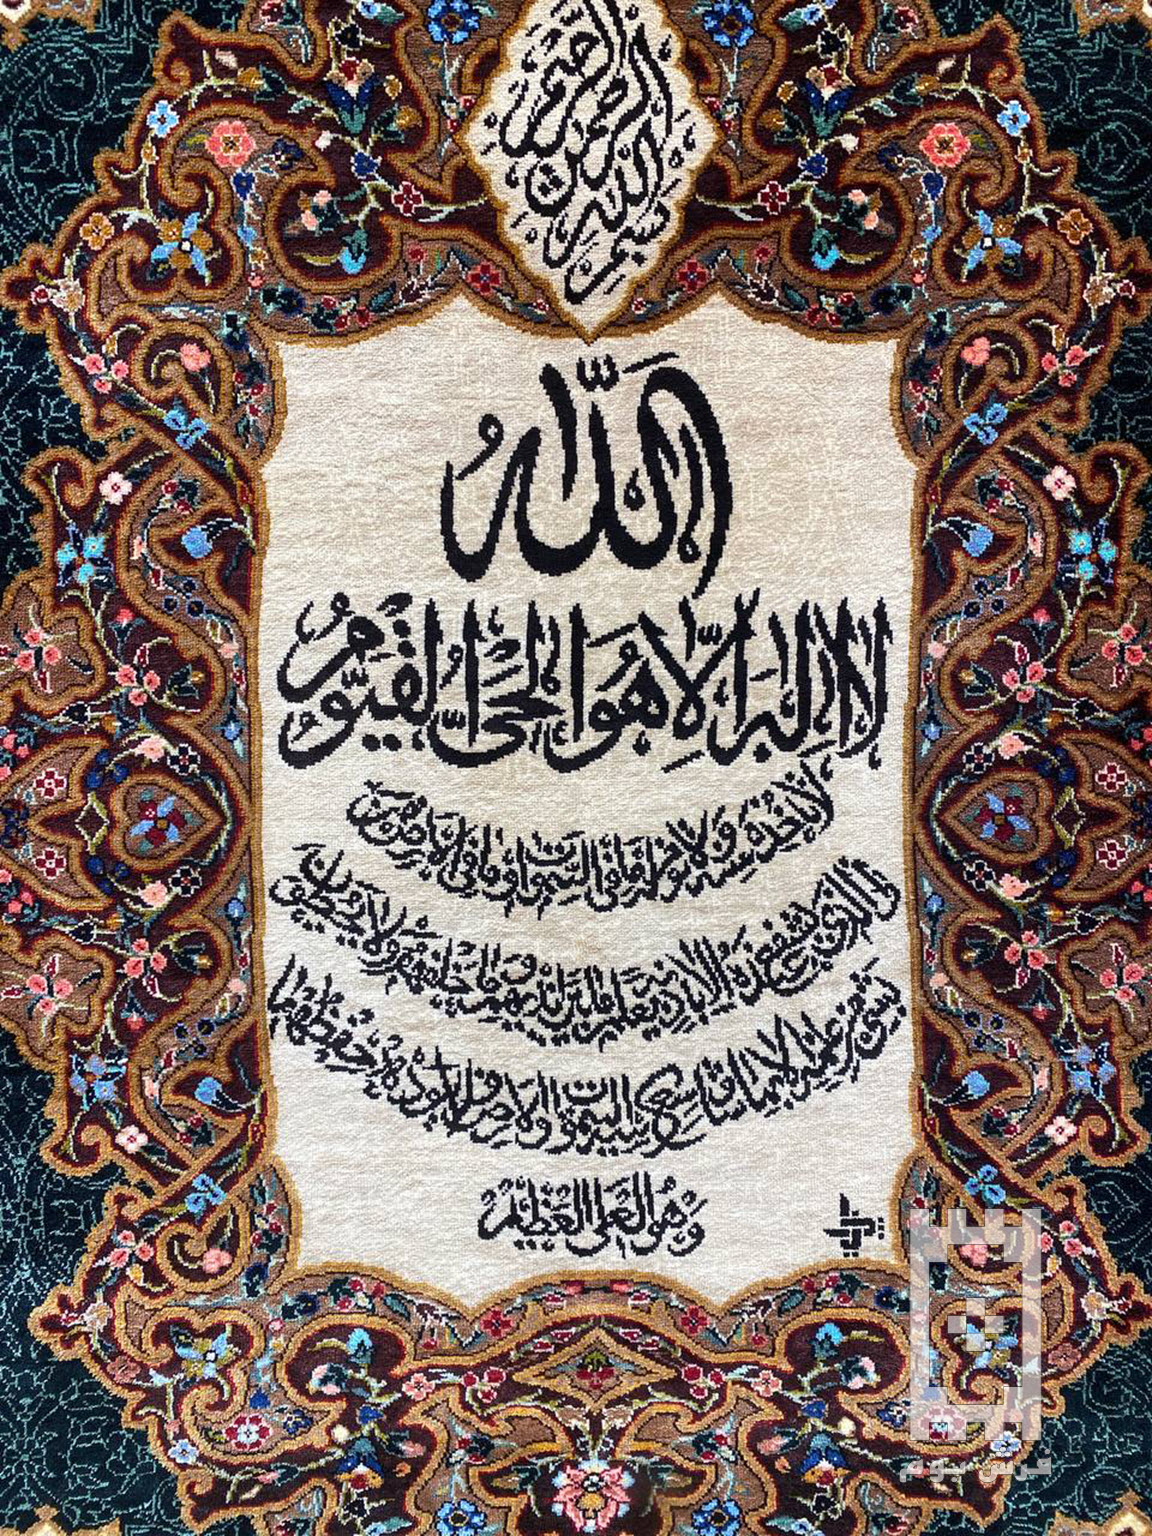 بسم الله الرحمن الرحيم
الله
لا إله إلا هو الحي القيوم
لا تأخذه سنة ولا نوم له ما في السموات وما في الأرض من
ذا الذي يشفع عنده إلا بإذنه يعلم ما بين أيديهم وما خلفهم ولا يحيطون
بشيء من علمه إلا بما شاء وسع كرسيه السموات والأرض ولا يؤده حفظهما
وهو العلي العظيم
فرش بوم